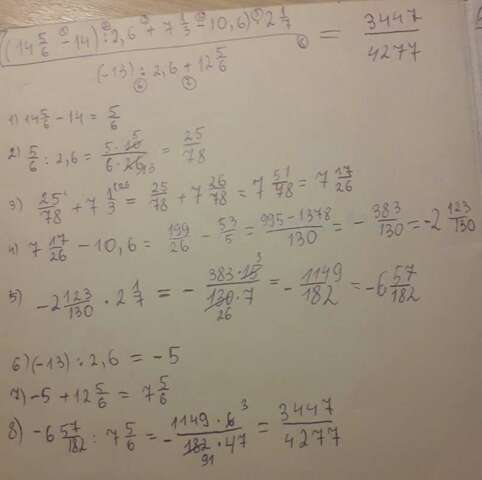 (14 5/6 - 14) : 2,6 + 7 1/3 - 10,6) · 2 1/7
(-13) : 2,6 + 12 5/6
= 3447/4277
1) 14 5/6 - 14 = 5/6
2) 5/6 : 2,6 = 5·10/6·26 = 25/78
3) 25/78 + 7 1/3 = 25/78 + 7 26/78 = 7 51/78 = 7 17/26
4) 7 17/26 - 10,6 = 199/26 - 53/5 = 995-1378/130 = - 383/130 = -2 123/130
5) -2 123/130 · 2 1/7 = - 383·15/130·7 = - 1149/182 = -6 57/182
6) (-13) : 2,6 = -5
7) -5 + 12 5/6 = 7 5/6
8) -6 57/182 : 7 5/6 = - 1149·6/182·47 = 3447/4277